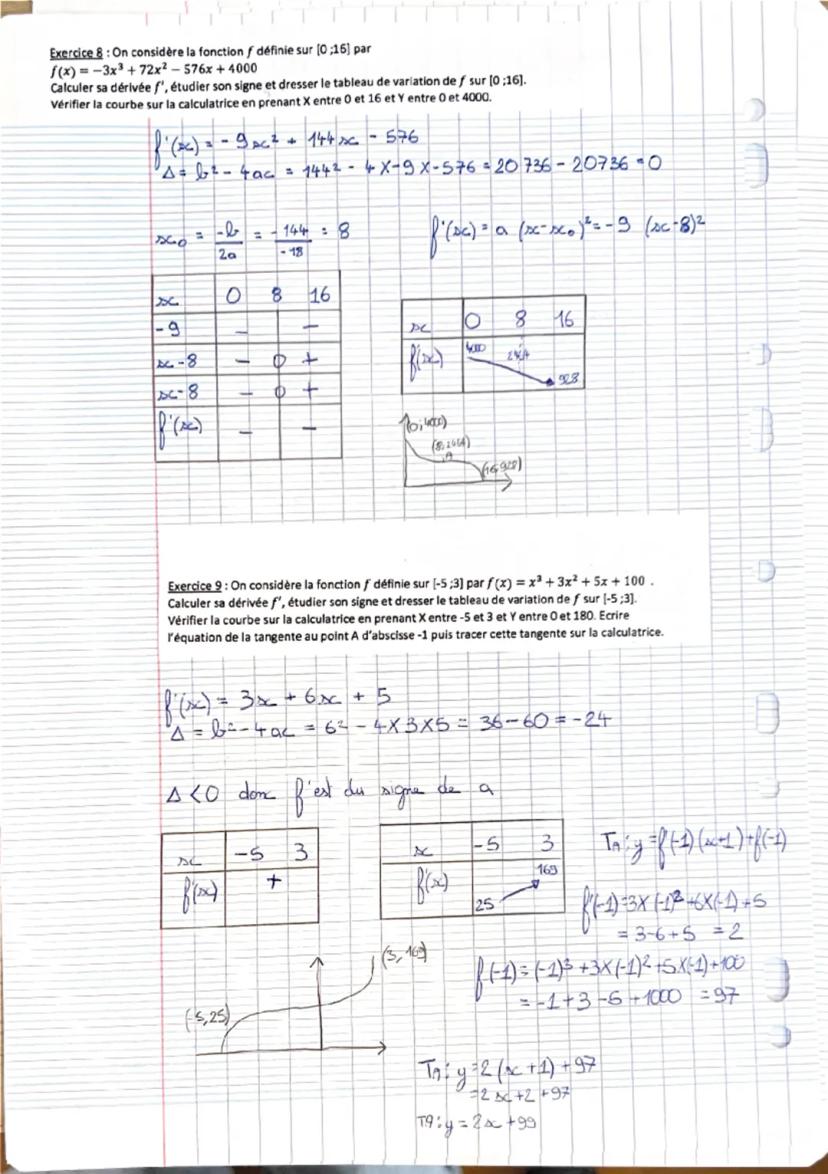 Exercice 8 : On considère la fonction f définie sur [0 ;16] par
f(x) = −3x³ + 72x² − 576x + 4000
Calculer sa dérivée f', étudier son signe et dresser le tableau de variation de f sur [0 ;16].
Vérifier la courbe sur la calculatrice en prenant X entre 0 et 16 et Y entre 0 et 4000.
f'(x) = - 9x² + 144x - 576
Δ = b² - 4ac = 144² - 4 x -9 x -576 = 20 736 - 20736 = 0
x₀ = -b/2a = -144/-18 = 8
f'(x) = a (x-x₀)² = -9 (x-8)²
x 0 8 16
-9 - -
x-8 - 0 +
x-8 - 0 +
f'(x) - -
x 0 8 16
f(x) 4000 928
(0;4000)
(16,928)
Exercice 9 : On considère la fonction f définie sur [-5 ;3] par f(x) = x³ + 3x² + 5x + 100 .
Calculer sa dérivée f', étudier son signe et dresser le tableau de variation de f sur [-5 ;3].
Vérifier la courbe sur la calculatrice en prenant X entre -5 et 3 et Y entre 0 et 180. Ecrire
l'équation de la tangente au point A d'abscisse -1 puis tracer cette tangente sur la calculatrice.
f'(x) = 3x + 6x + 5
Δ = b² - 4ac = 6² - 4 x 3 x 5 = 36 - 60 = -24
Δ < 0 donc f'est du signe de a
x -5 3
f'(x) +
x -5 3
f(x) 25 169
TA : y = f'(-1) (x+1) + f(-1)
f'(-1) = 3 x (-1)² + 6x(-1) + 5
= 3-6+5 = 2
f(-1) = (-1)³ + 3x(-1)² + 5x(-1) + 100
= -1 + 3 - 5 + 1000 = 97
(3, 169)
(-5,25)
TA : y = 2 (x + 1) + 97
= 2x + 2 + 97
TA : y = 2x + 99